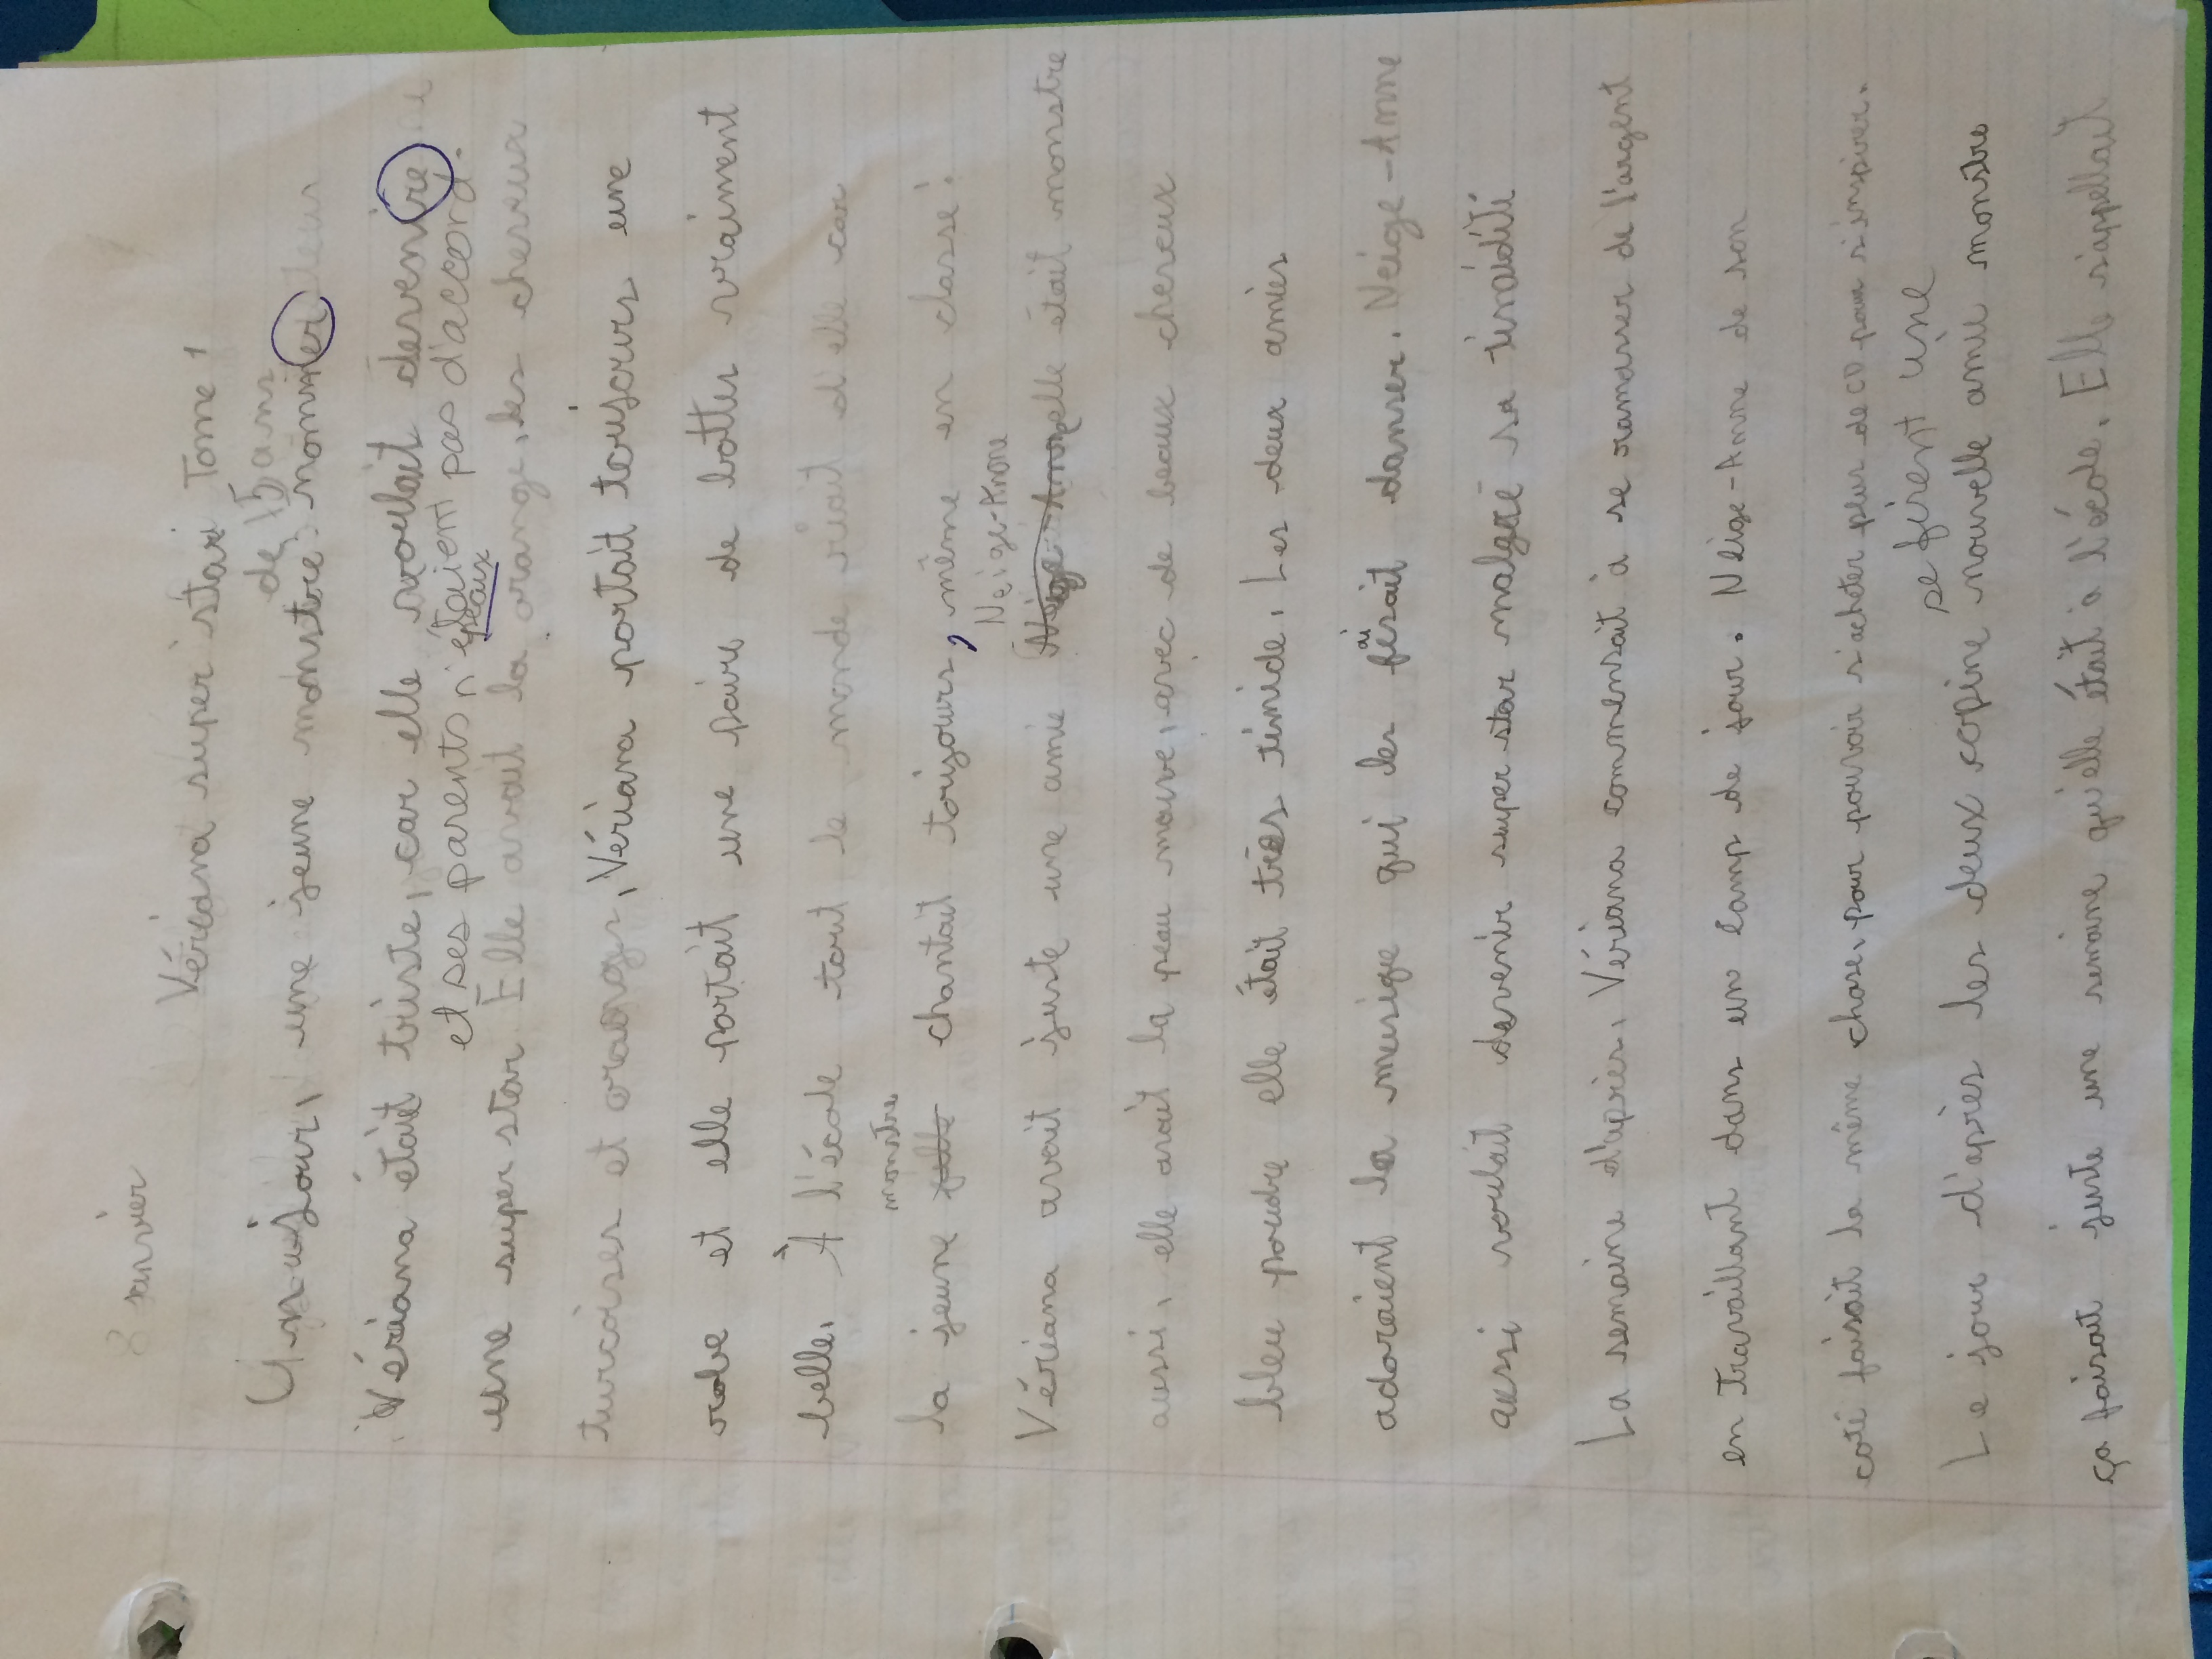 8 janvier
Vériana super star Tome 1
de 15 ans
Un jour, une jeune monstre nommer
Vériana était triste, car elle voulait devenire
et ses parents n'étaient pas d'accord.
peaux
une super star. Elle avait la orange, les cheveux
turcoises et orange, Vériana portait toujours une
robe et elle portait une paire de bottes vraiment
belle. À l'école tout le monde riait d'elle car
monstre
la jeune fille chantait toujours, même en classe!
Neige-Anne
Vériana avait juste une amie Neige-Anne elle était monstre
aussi, elle avait la peau mauve, avec de beaux cheveux
bleu poudre elle était très timide. Les deux amies
ai
adoraient la musique qui les fésait danser. Neige-Anne
aussi voulait devenir super star malgré sa timidité
La semaine d'après, Vériana commensait à se ramasser de l'argent
en travaillant dans un camp de jour. Neige-Anne de son
coté faisait la même chose pour pouvoir s'acheter plus de CD pour s'inspirer.
se firent une
Le jour d'après les deux copine nouvelle amie monstre
ça faisait juste une semaine qu'elle était à l'école. Elle s'appellait